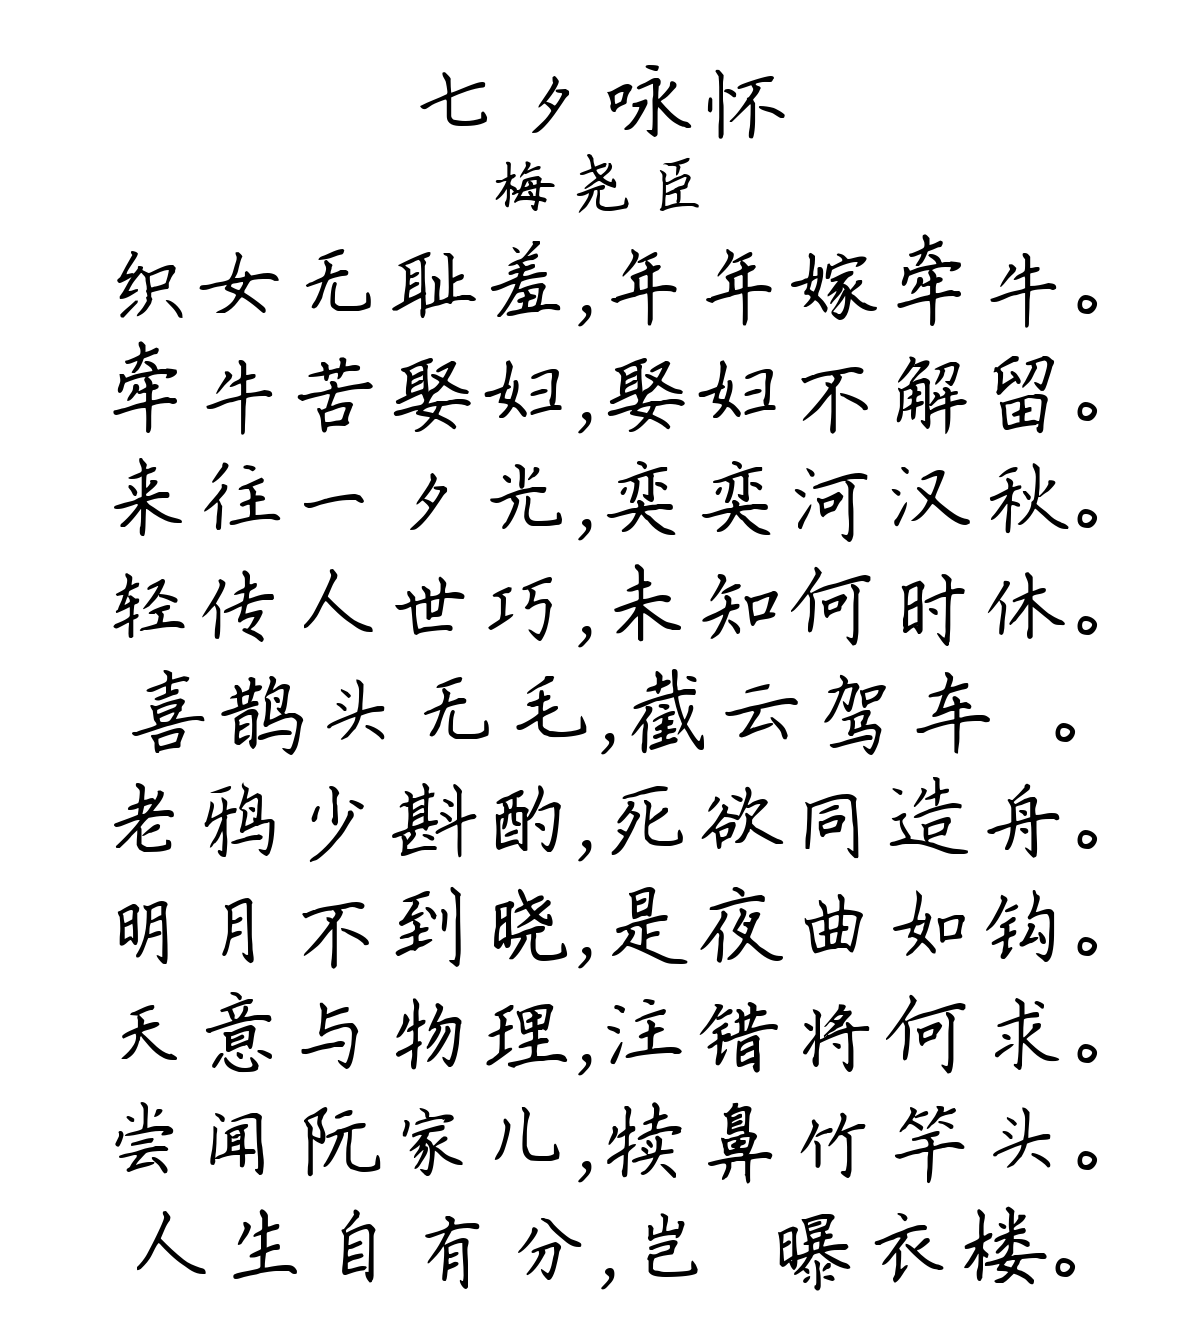 七夕咏怀
梅尧臣
织女无耻羞,年年嫁牵牛。
牵牛苦娶妇,娶妇不解留。
来往一夕光,奕奕河汉秋。
轻传人世巧,未知何时休。
喜鹊头无毛,截云驾车 。
老鸦少斟酌,死欲同造舟。
明月不到晓,是夜曲如钩。
天意与物理,注错将何求。
尝闻阮家儿,犊鼻竹竿头。
人生自有分,岂 曝衣楼。